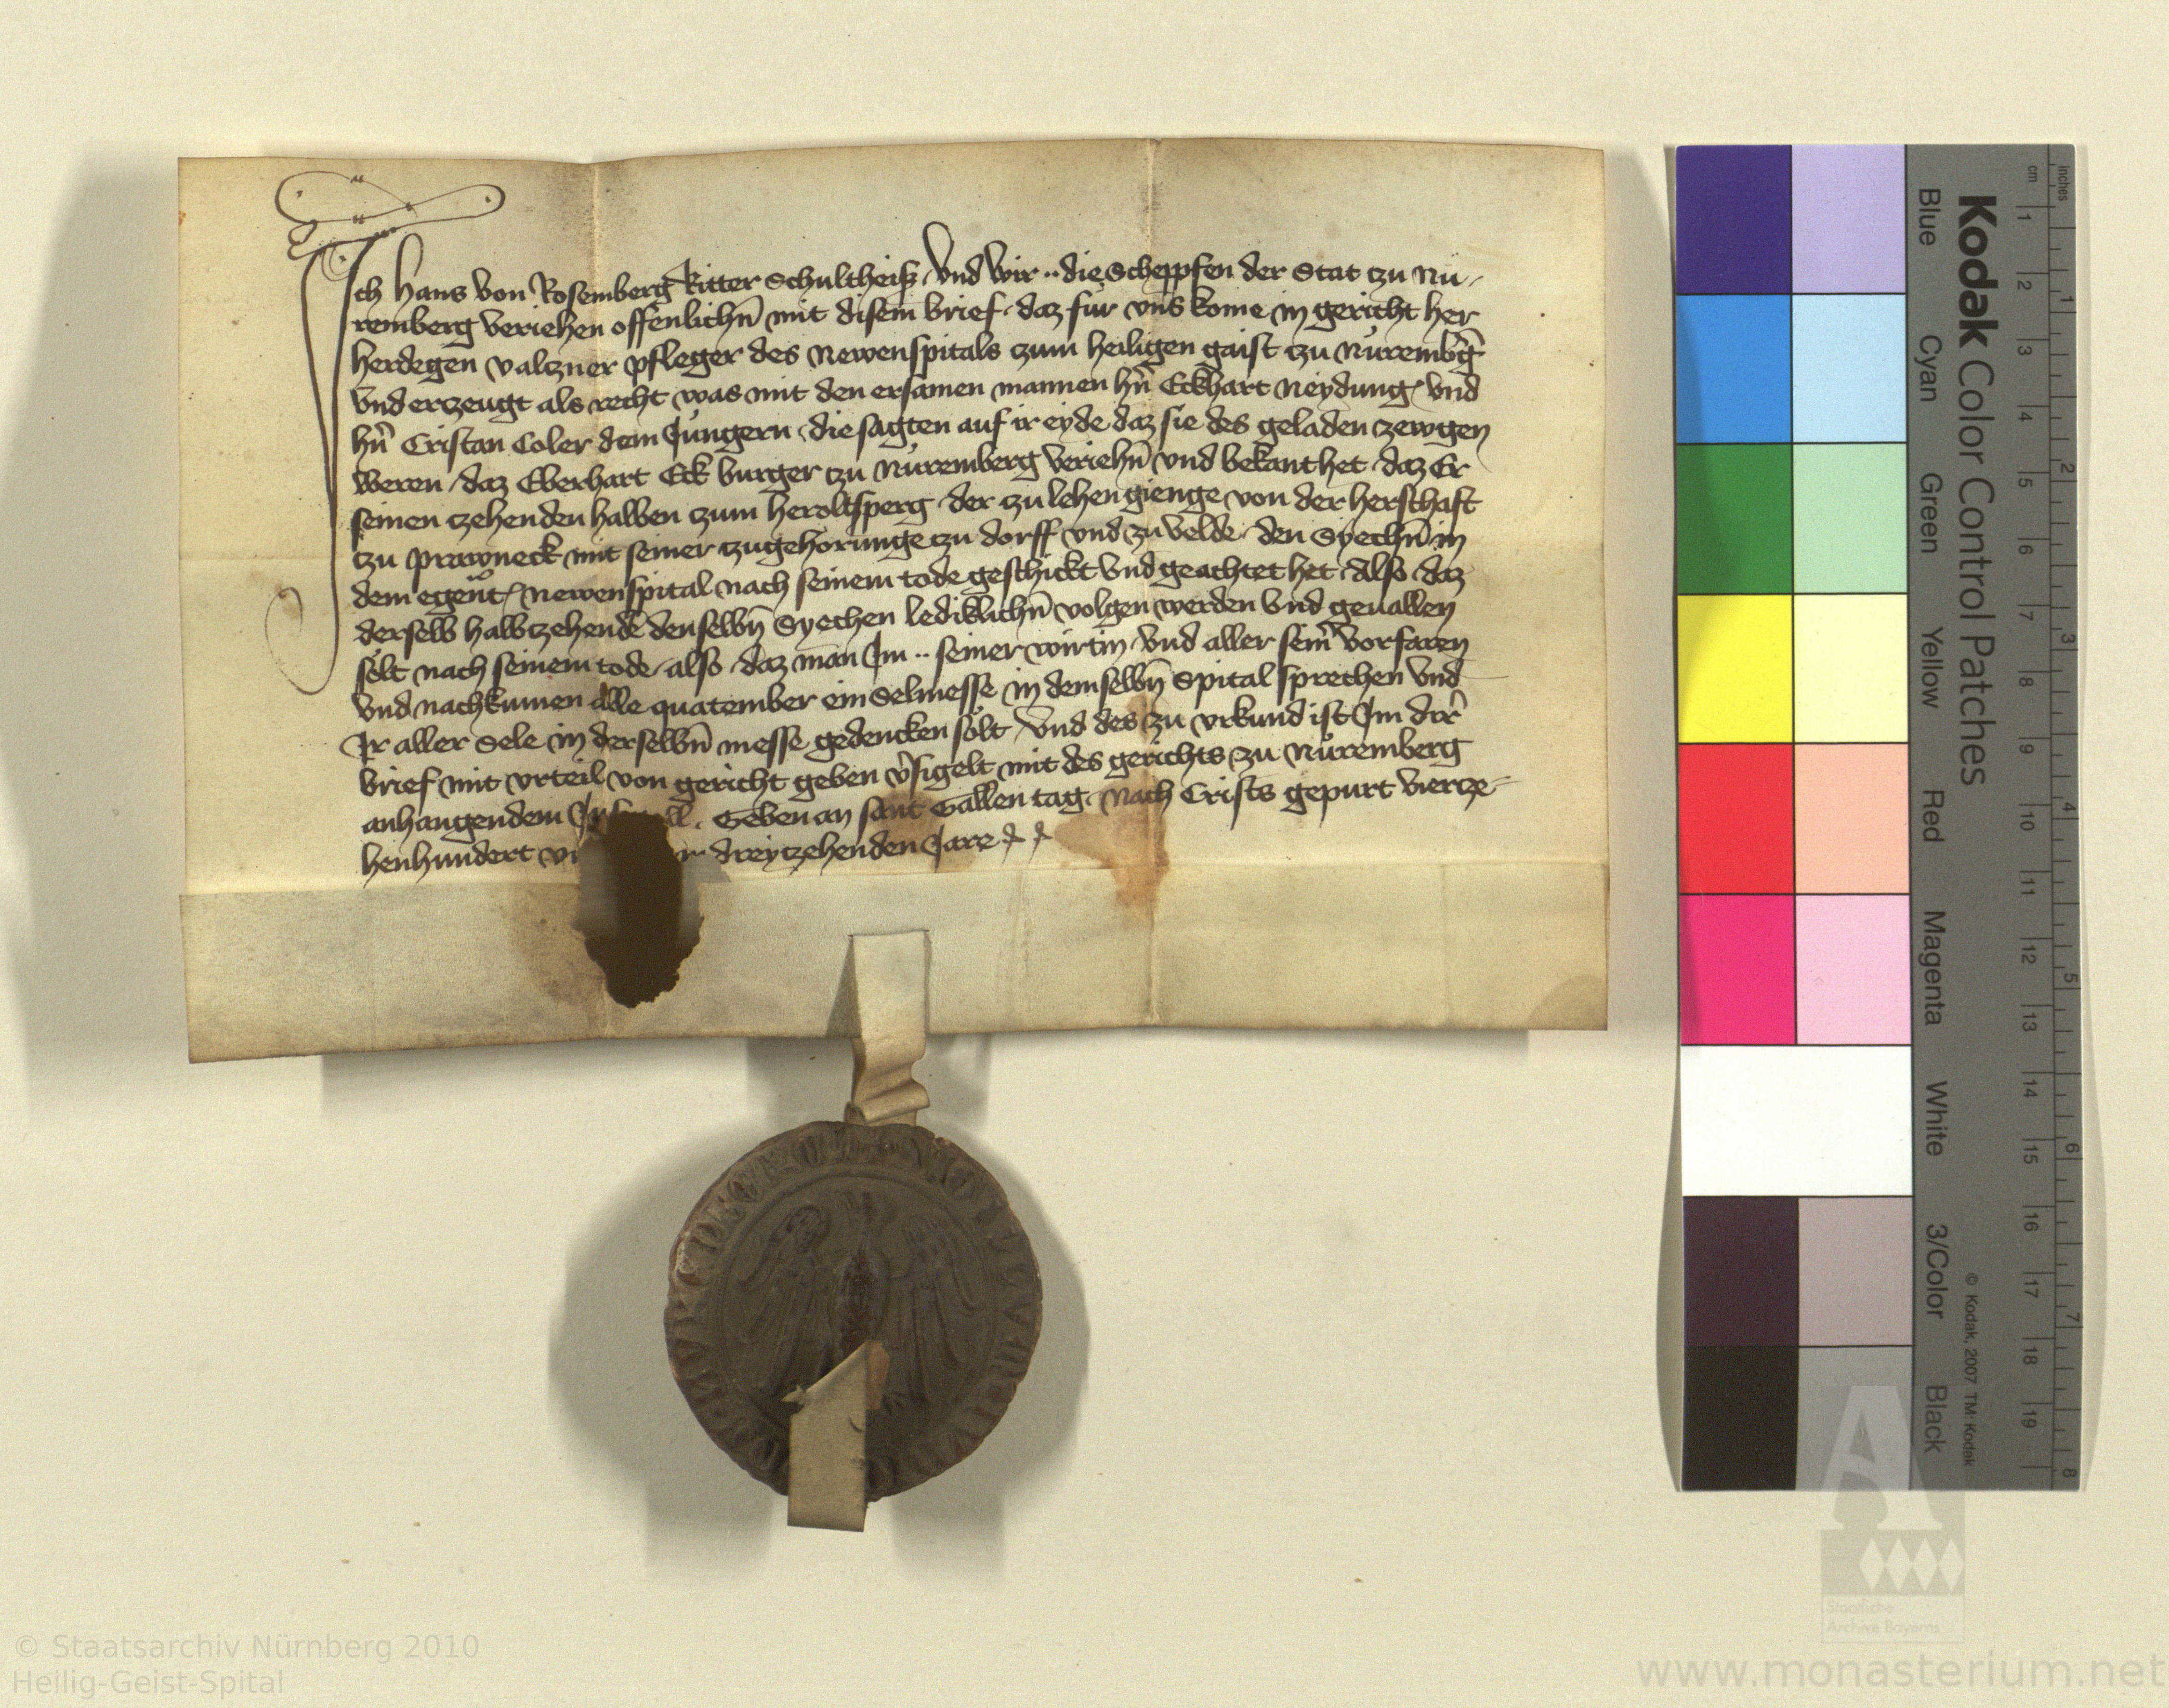 Ich Hans von Rosemberg Ritter Schultheiß, vnd wir .. die Scheppfen der Stat zu Nu-
remberg veriehen offenlichn̄ mit disem brief, daz fur vns kome in gericht her
herdegen valczner pfleger des Newenspitals zum heiligen gaist zu Nurembḡ
vnd erzeugt als recht was mit den ersamen mannen hn̄ Eckhart Neydung, vnd
hn̄ Cristan Coler dem Jungern, die sagten auf ir eyde daz sie des geladen zewgen
weren, daz Eberhart Eck burger zu Nuremberg veriehn̄ vnd bekant het, daz Er
seinen zehenden halben zum heroltsperg, der zu lehen gienge von der herschaft
zu prawneck mit seiner zugehorunge zu dorff vnd zu velde, den Syechn̄ in
dem egent Newenspital nach seinem tode geschickt vnd geachtet het, Also, daz
derselb halbzehende denselbn̄ Syechen lediklichn̄ volgen werden vnd geuallen
solt nach seinem tode, also, daz man Im .. seiner wirtin, vnd aller seinr̄ vorfaren
vnd nachkumen alle quatember ein Selmesse in demselbn̄ Spital sprechen vnd
Ir aller Sele in derselbn̄ messe gedencken solt, vnd des zu vrkund ist Im dir̄
brief mit vrteil von gericht geben v̄sigelt mit des gerichts zu Nuremberg
anhangendem Geben an sant Gallen tag, Nach Crists gepurt vierze-
henhundert dreyzehenden Jare
Kodak Color Control Patches
Blue Cyan Green Yellow Red Magenta White 3/Color Black
inches 1 2 3 4 5 6 7 8
cm 1 2 3 4 5 6 7 8 9 10 11 12 13 14 15 16 17 18 19
© Kodak, 2007 TM: Kodak
Staatliche
Archive Bayerns
© Staatsarchiv Nürnberg 2010
Heilig-Geist-Spital
www.monasterium.net